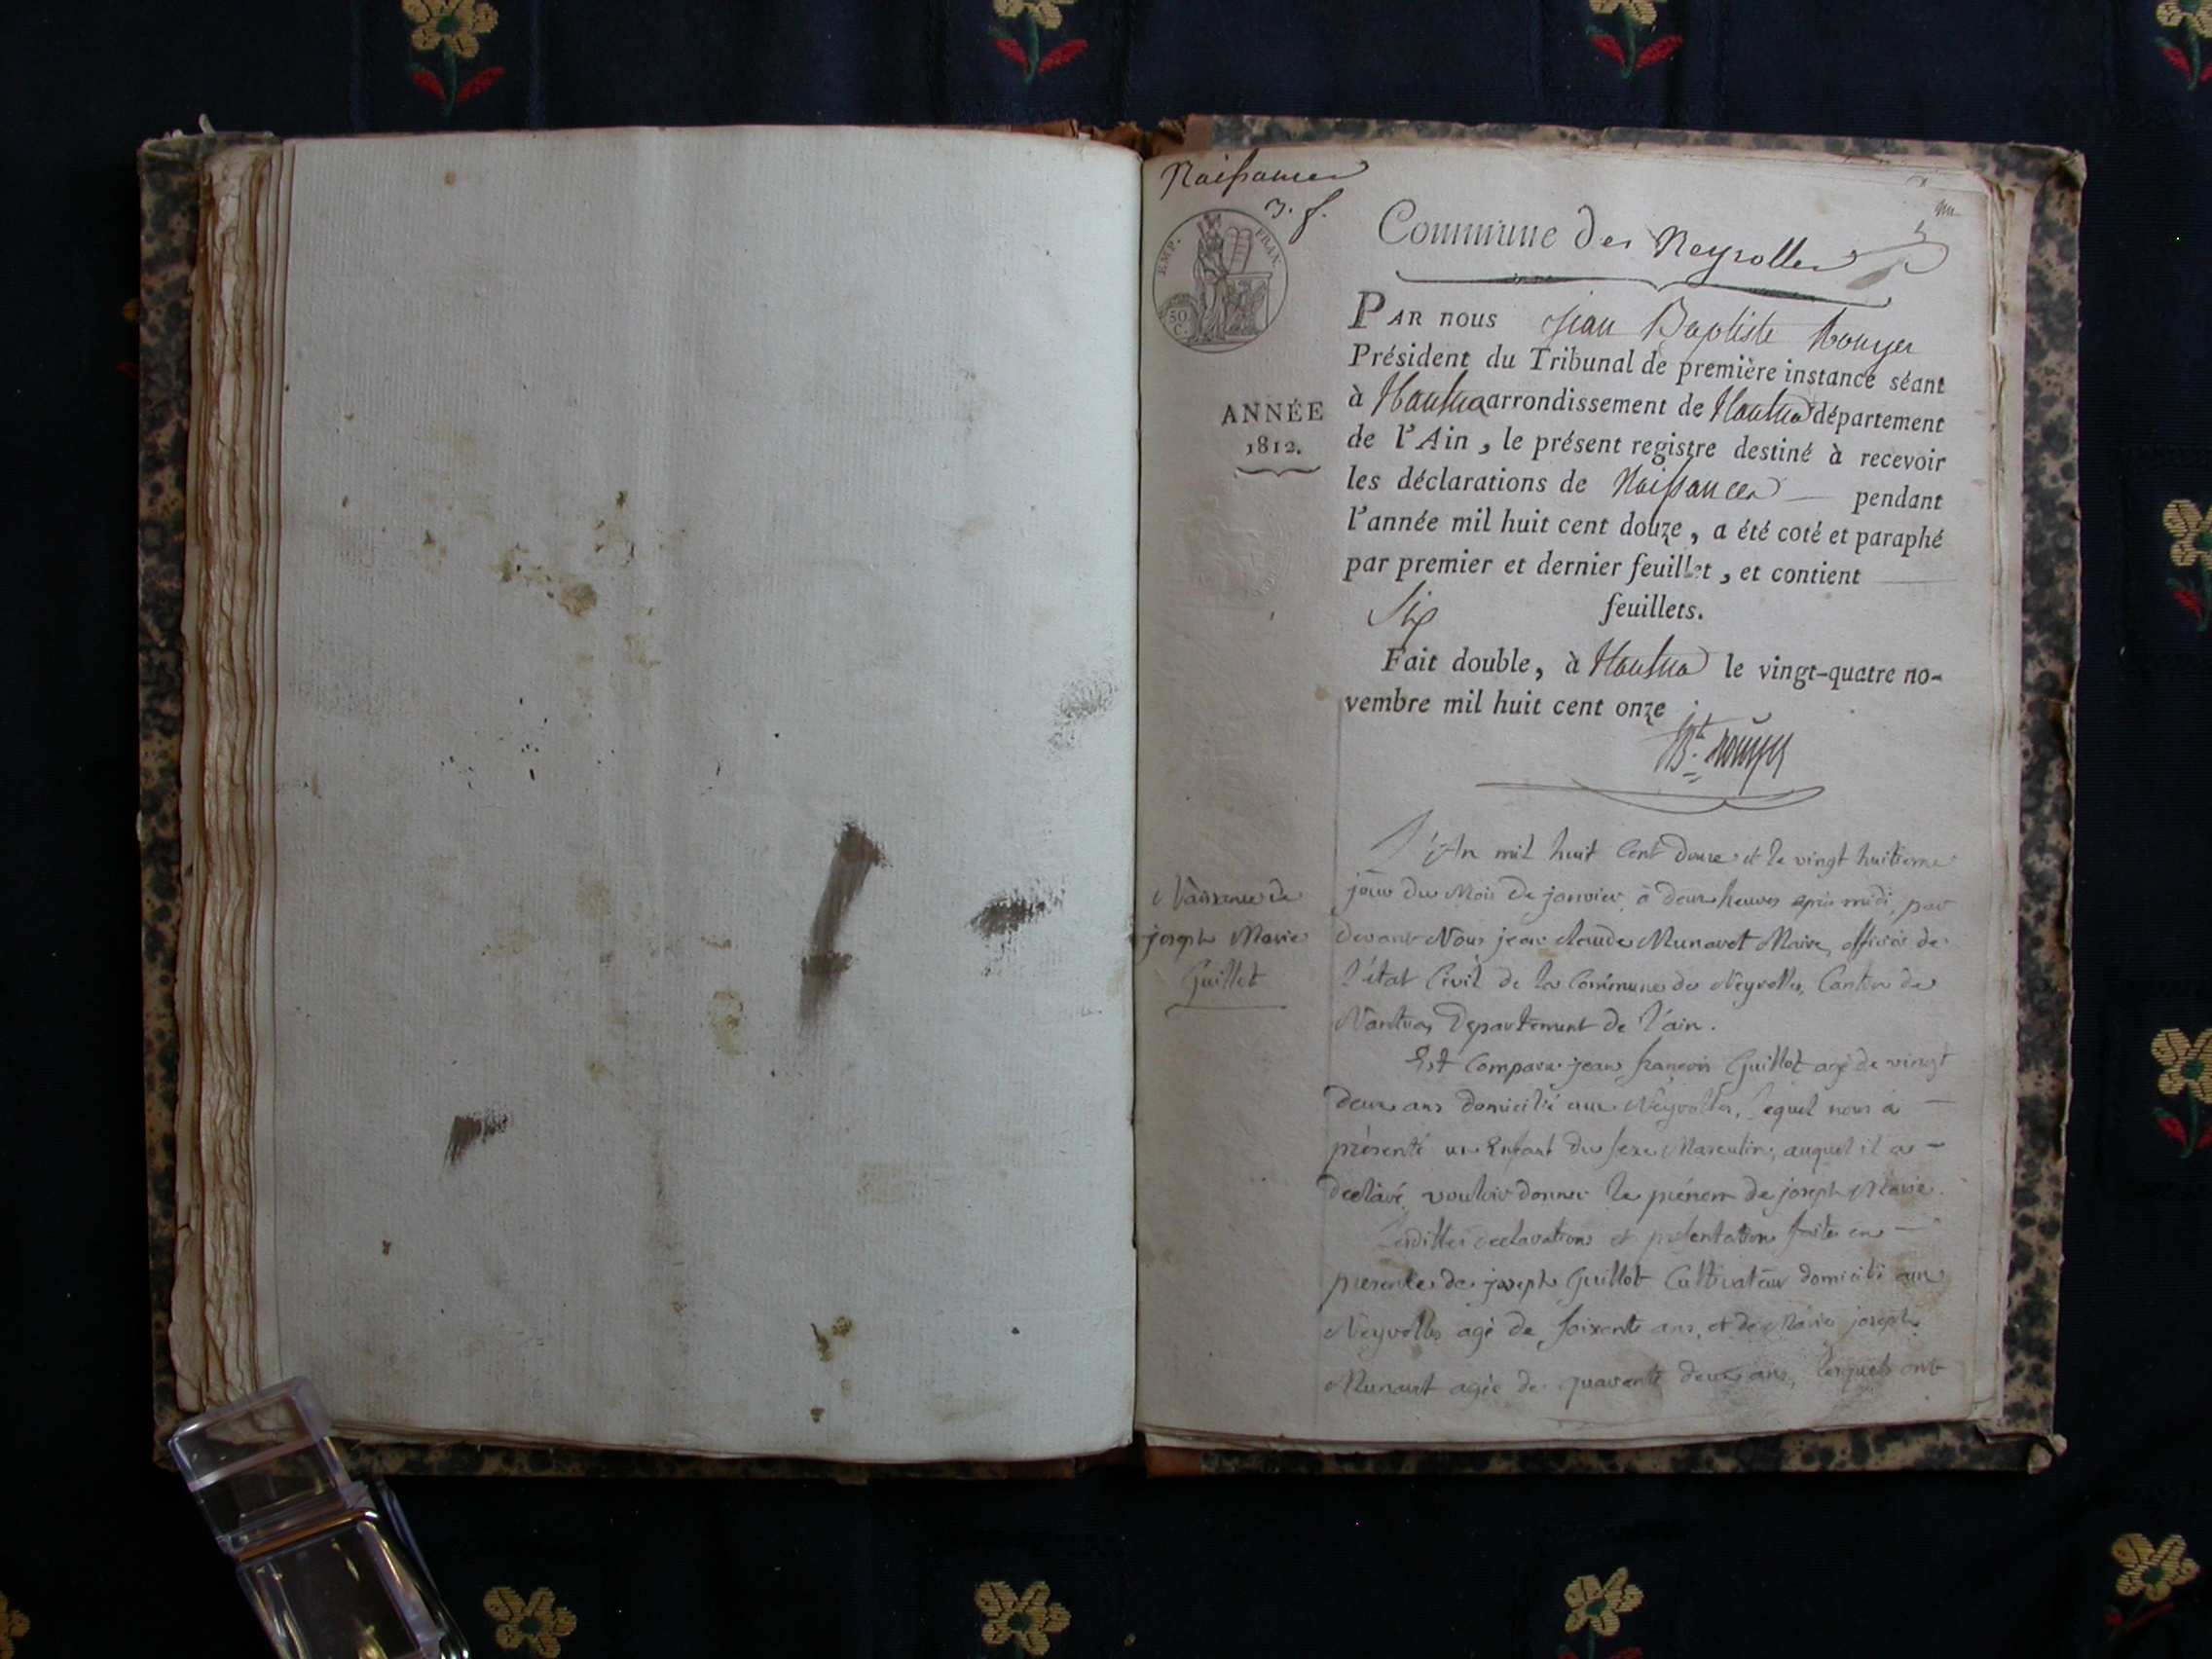 Naissances
3. f.
EMP. FRAN.
50 C.
Commune des Neyrolles
PAR nous Jean Baptiste Rouyer
Président du Tribunal de première instance séant
à Nantua arrondissement de Nantua département
ANNÉE
1812.
de l'Ain, le présent registre destiné à recevoir
les déclarations de Naissances pendant
l'année mil huit cent douze, a été coté et paraphé
par premier et dernier feuillet, et contient
Six feuillets.
Fait double, à Nantua le vingt-quatre no-
vembre mil huit cent onze
Bte. Rouyer
L'An mil huit Cent douze et le vingt huitieme
jour du Mois de janvier à deux heures après midi, par
devant Nous jean claude Munavet Maire, officier de
l'état Civil de la Commune des Neyrolles, Canton de
Nantua, Departement de l'ain.
Naissance de
joseph Marie
Guillot
Est Comparu jean françois Guillot agé de vingt
deux ans domicilié aux Neyrolles, lequel nous a
présenté un Enfant du sexe Masculin, auquel il a
declaré vouloir donner le prénom de joseph Marie.
Lesdittes declarations et présentation faites en
presence de joseph Guillot Cultivateur domicilié aux
Neyrolles agé de soixante ans, et de Marie joseph
agée de quarante deux ans, lesquels ont